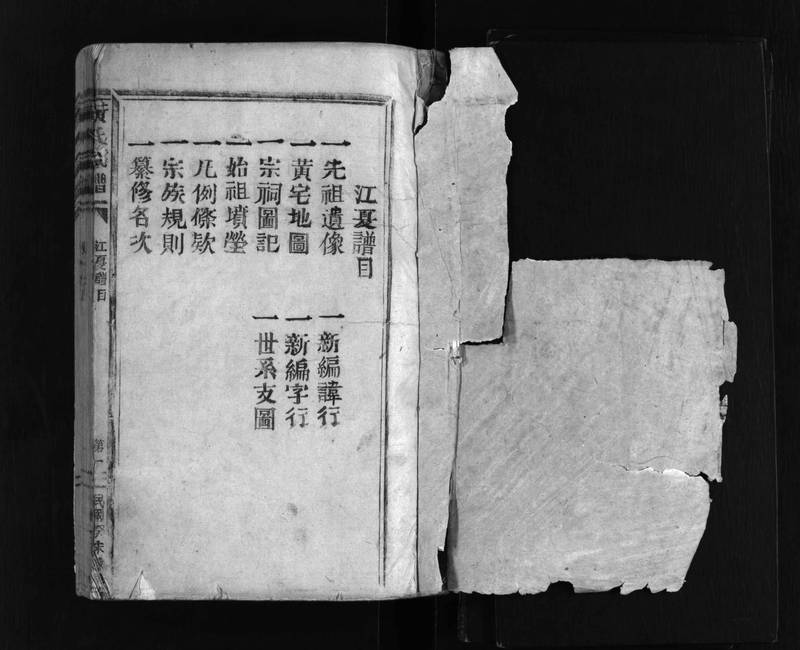 江夏譜目
一先祖遺像
一新編諱行
一黃宅地圖
一新編字行
一宗祠圖記
一世系支圖
一始祖墳塋
一凡例條欵
一宗族規則
一纂修名次
黃氏宗譜
江夏譜目
第一
民國